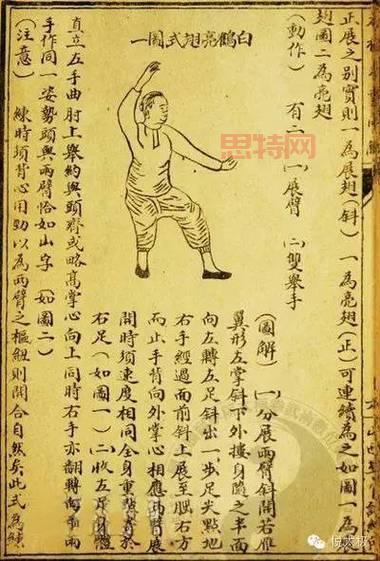 正展之别實則一為展翅(斜)一為亮翅(正)可連續為之如圖一為
翅圖二為亮翅
(動作)有二(一)展臂(二)雙舉手
白鶴亮翅式圖一
(圖解)(一)分展兩臂斜開若雁
翼形左掌斜下外摟身隨之半面
向左轉左足斜出一步足尖點地
右手經過面前斜上展至腮右方
而止手背向外掌心相應兩臂展
開時須速度相同全身重點寄於
右足(如圖一)(二)收左足身體
直立左手曲肘上舉約與頭齊或略高掌心向上同時右手亦翻轉向兩
手作同一姿勢頭與兩臂恰如山字(如圖二)
(注意)練時須背心用勁以為兩臂之樞紐則開合自然矣此式為練
思特网
倪太极